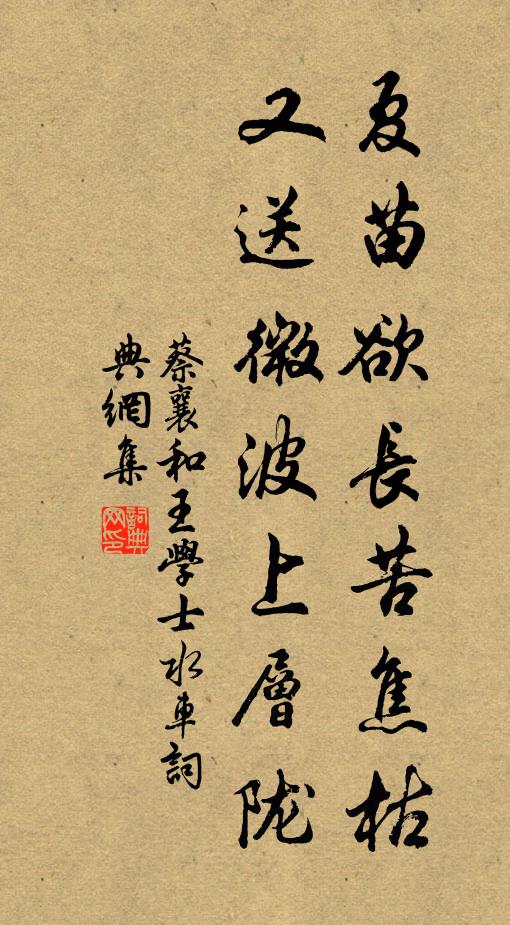 夏苗欲長苦焦枯
又送微波上層陇
蔡襄和王學士水車詞
典網集
詞典網印